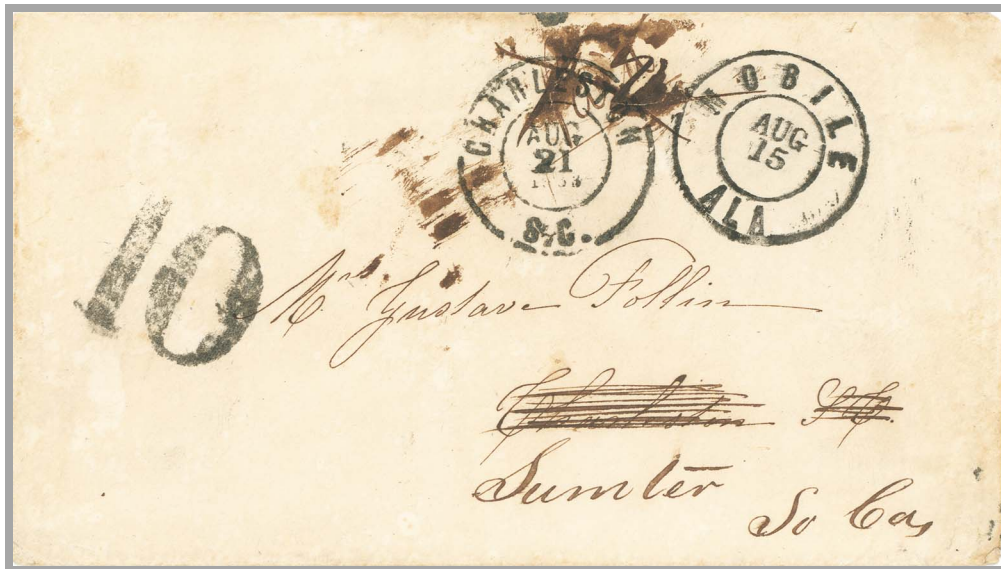 CHARLESTON
AUG
21
S.C.
MOBILE
AUG
15
ALA
10
Mrs Gustave Follin
Charleston SC.
Sumter
So Ca,